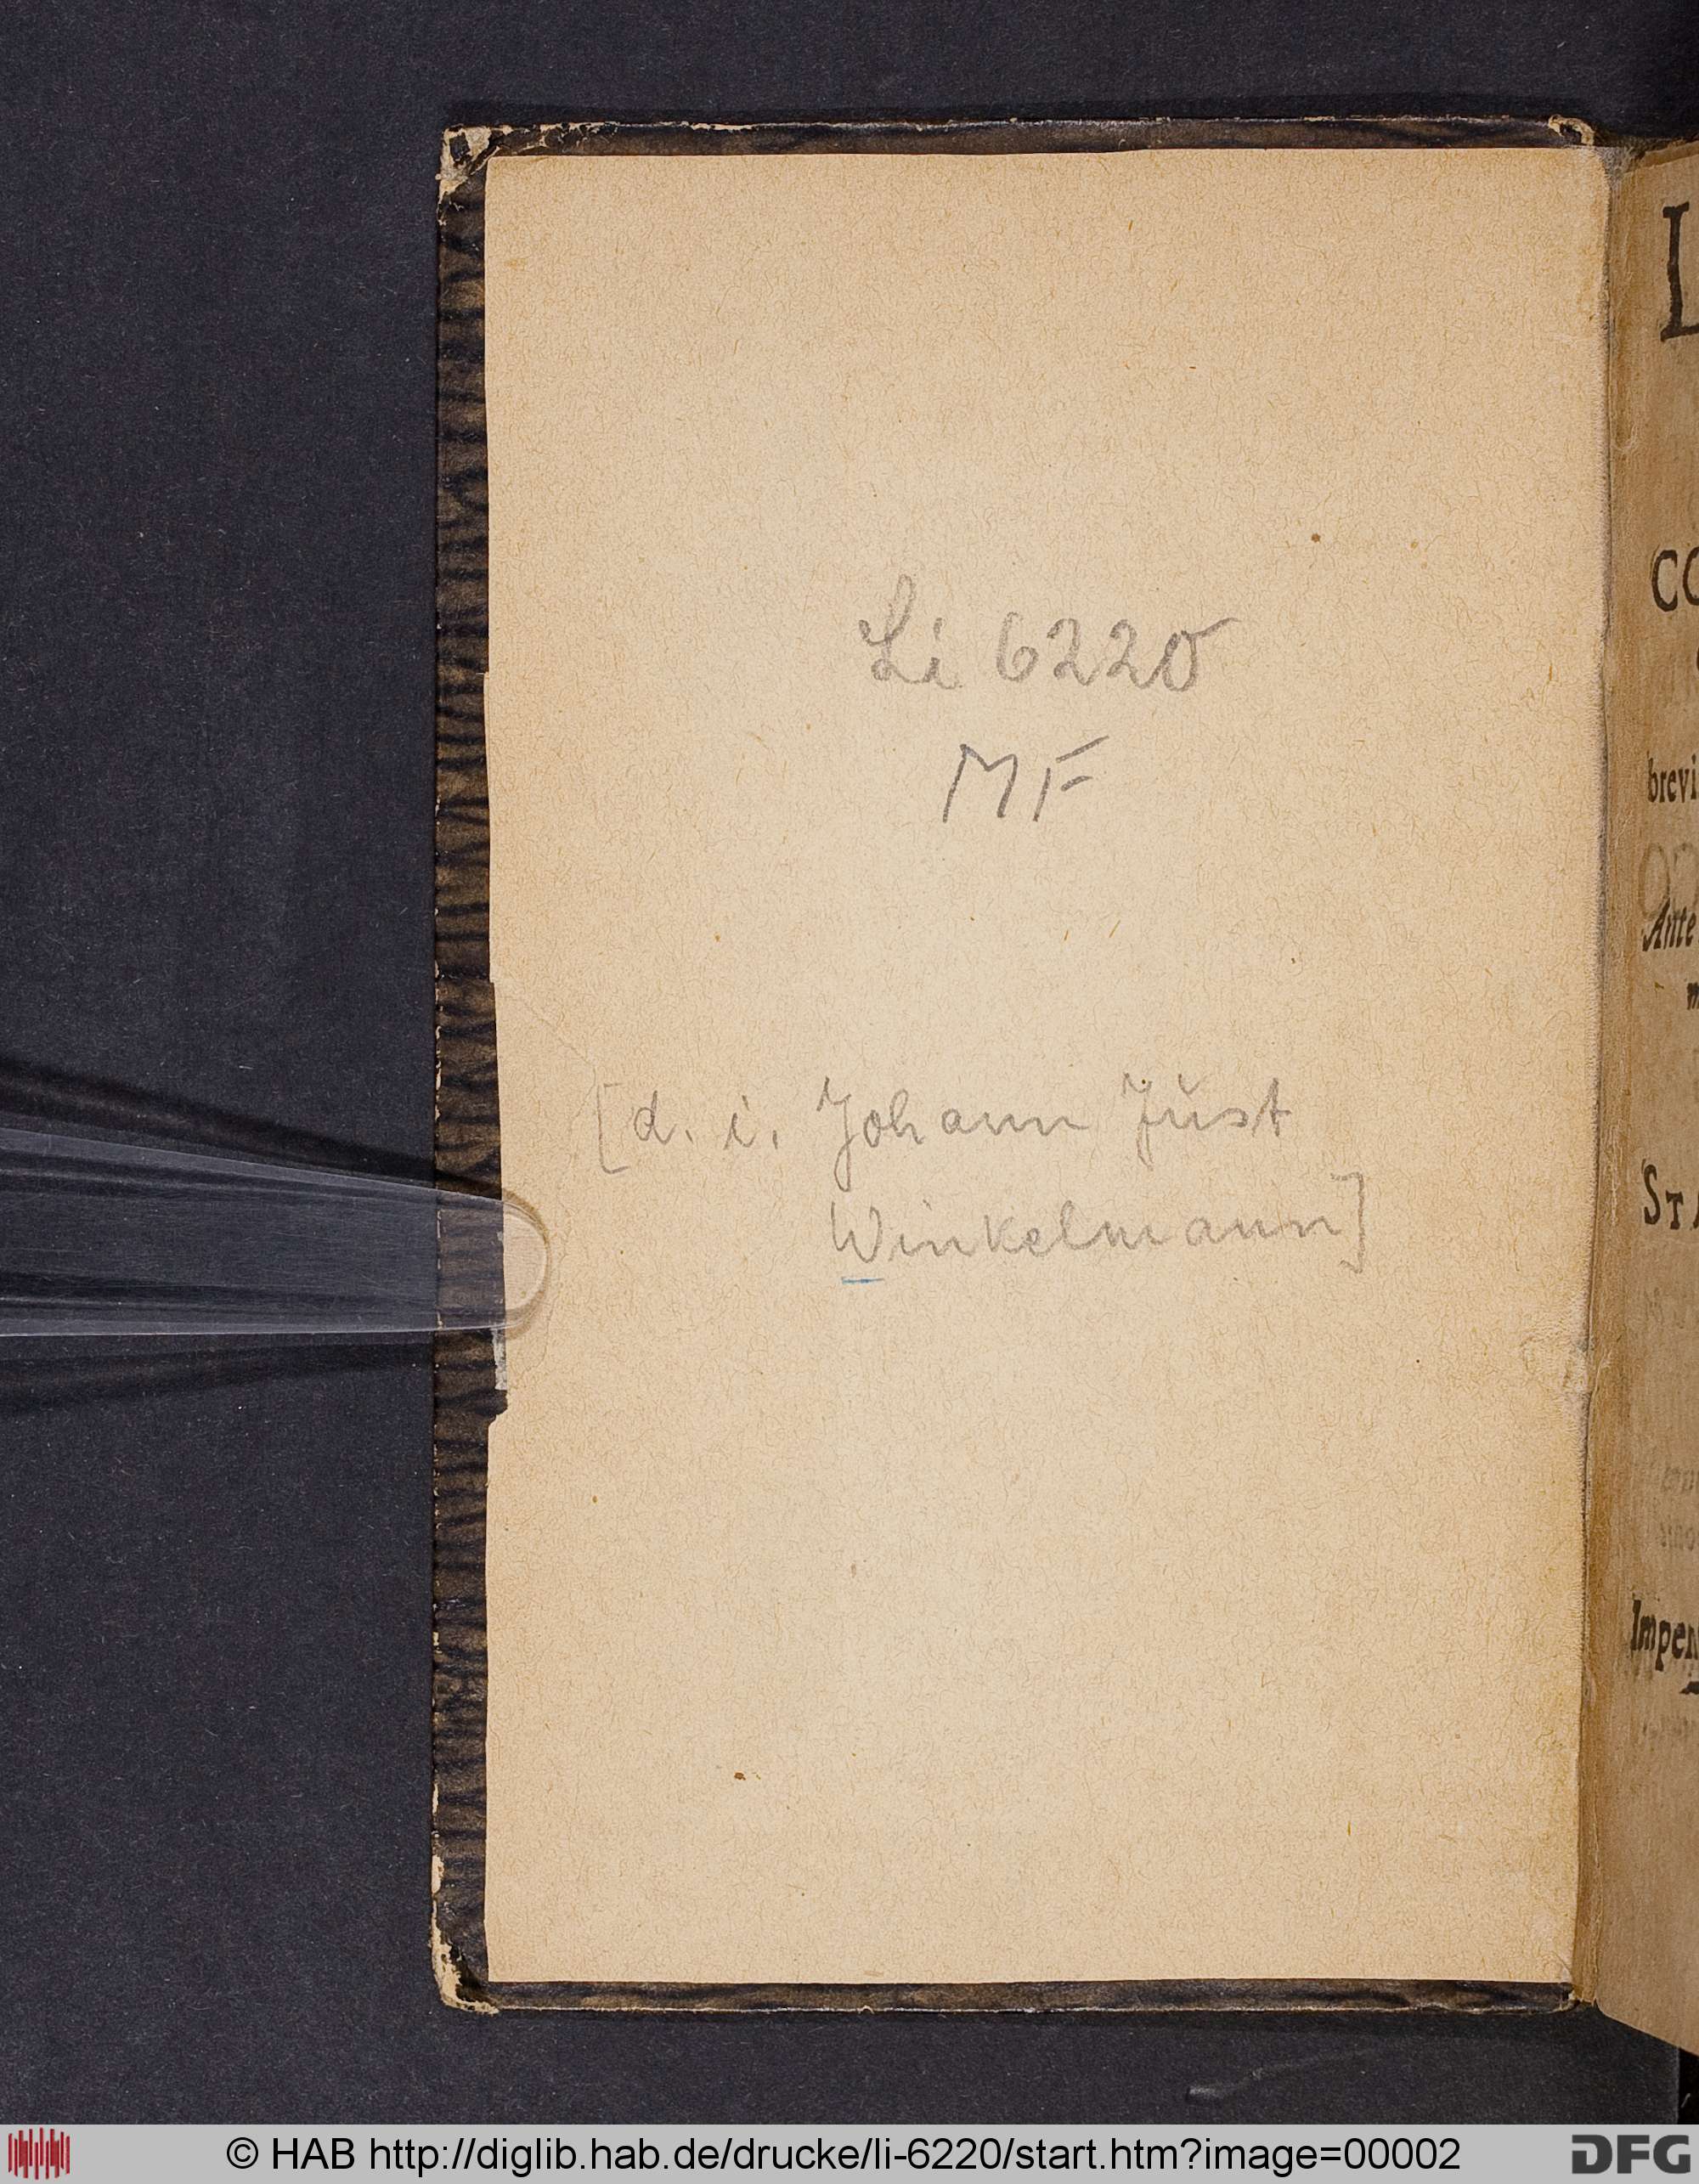 Li 6220
MF
[d. i. Johann Just
Winkelmann]
L
CO
brevi
Ante
m
STA
Impen
© HAB http://diglib.hab.de/drucke/li-6220/start.htm?image=00002
DFG